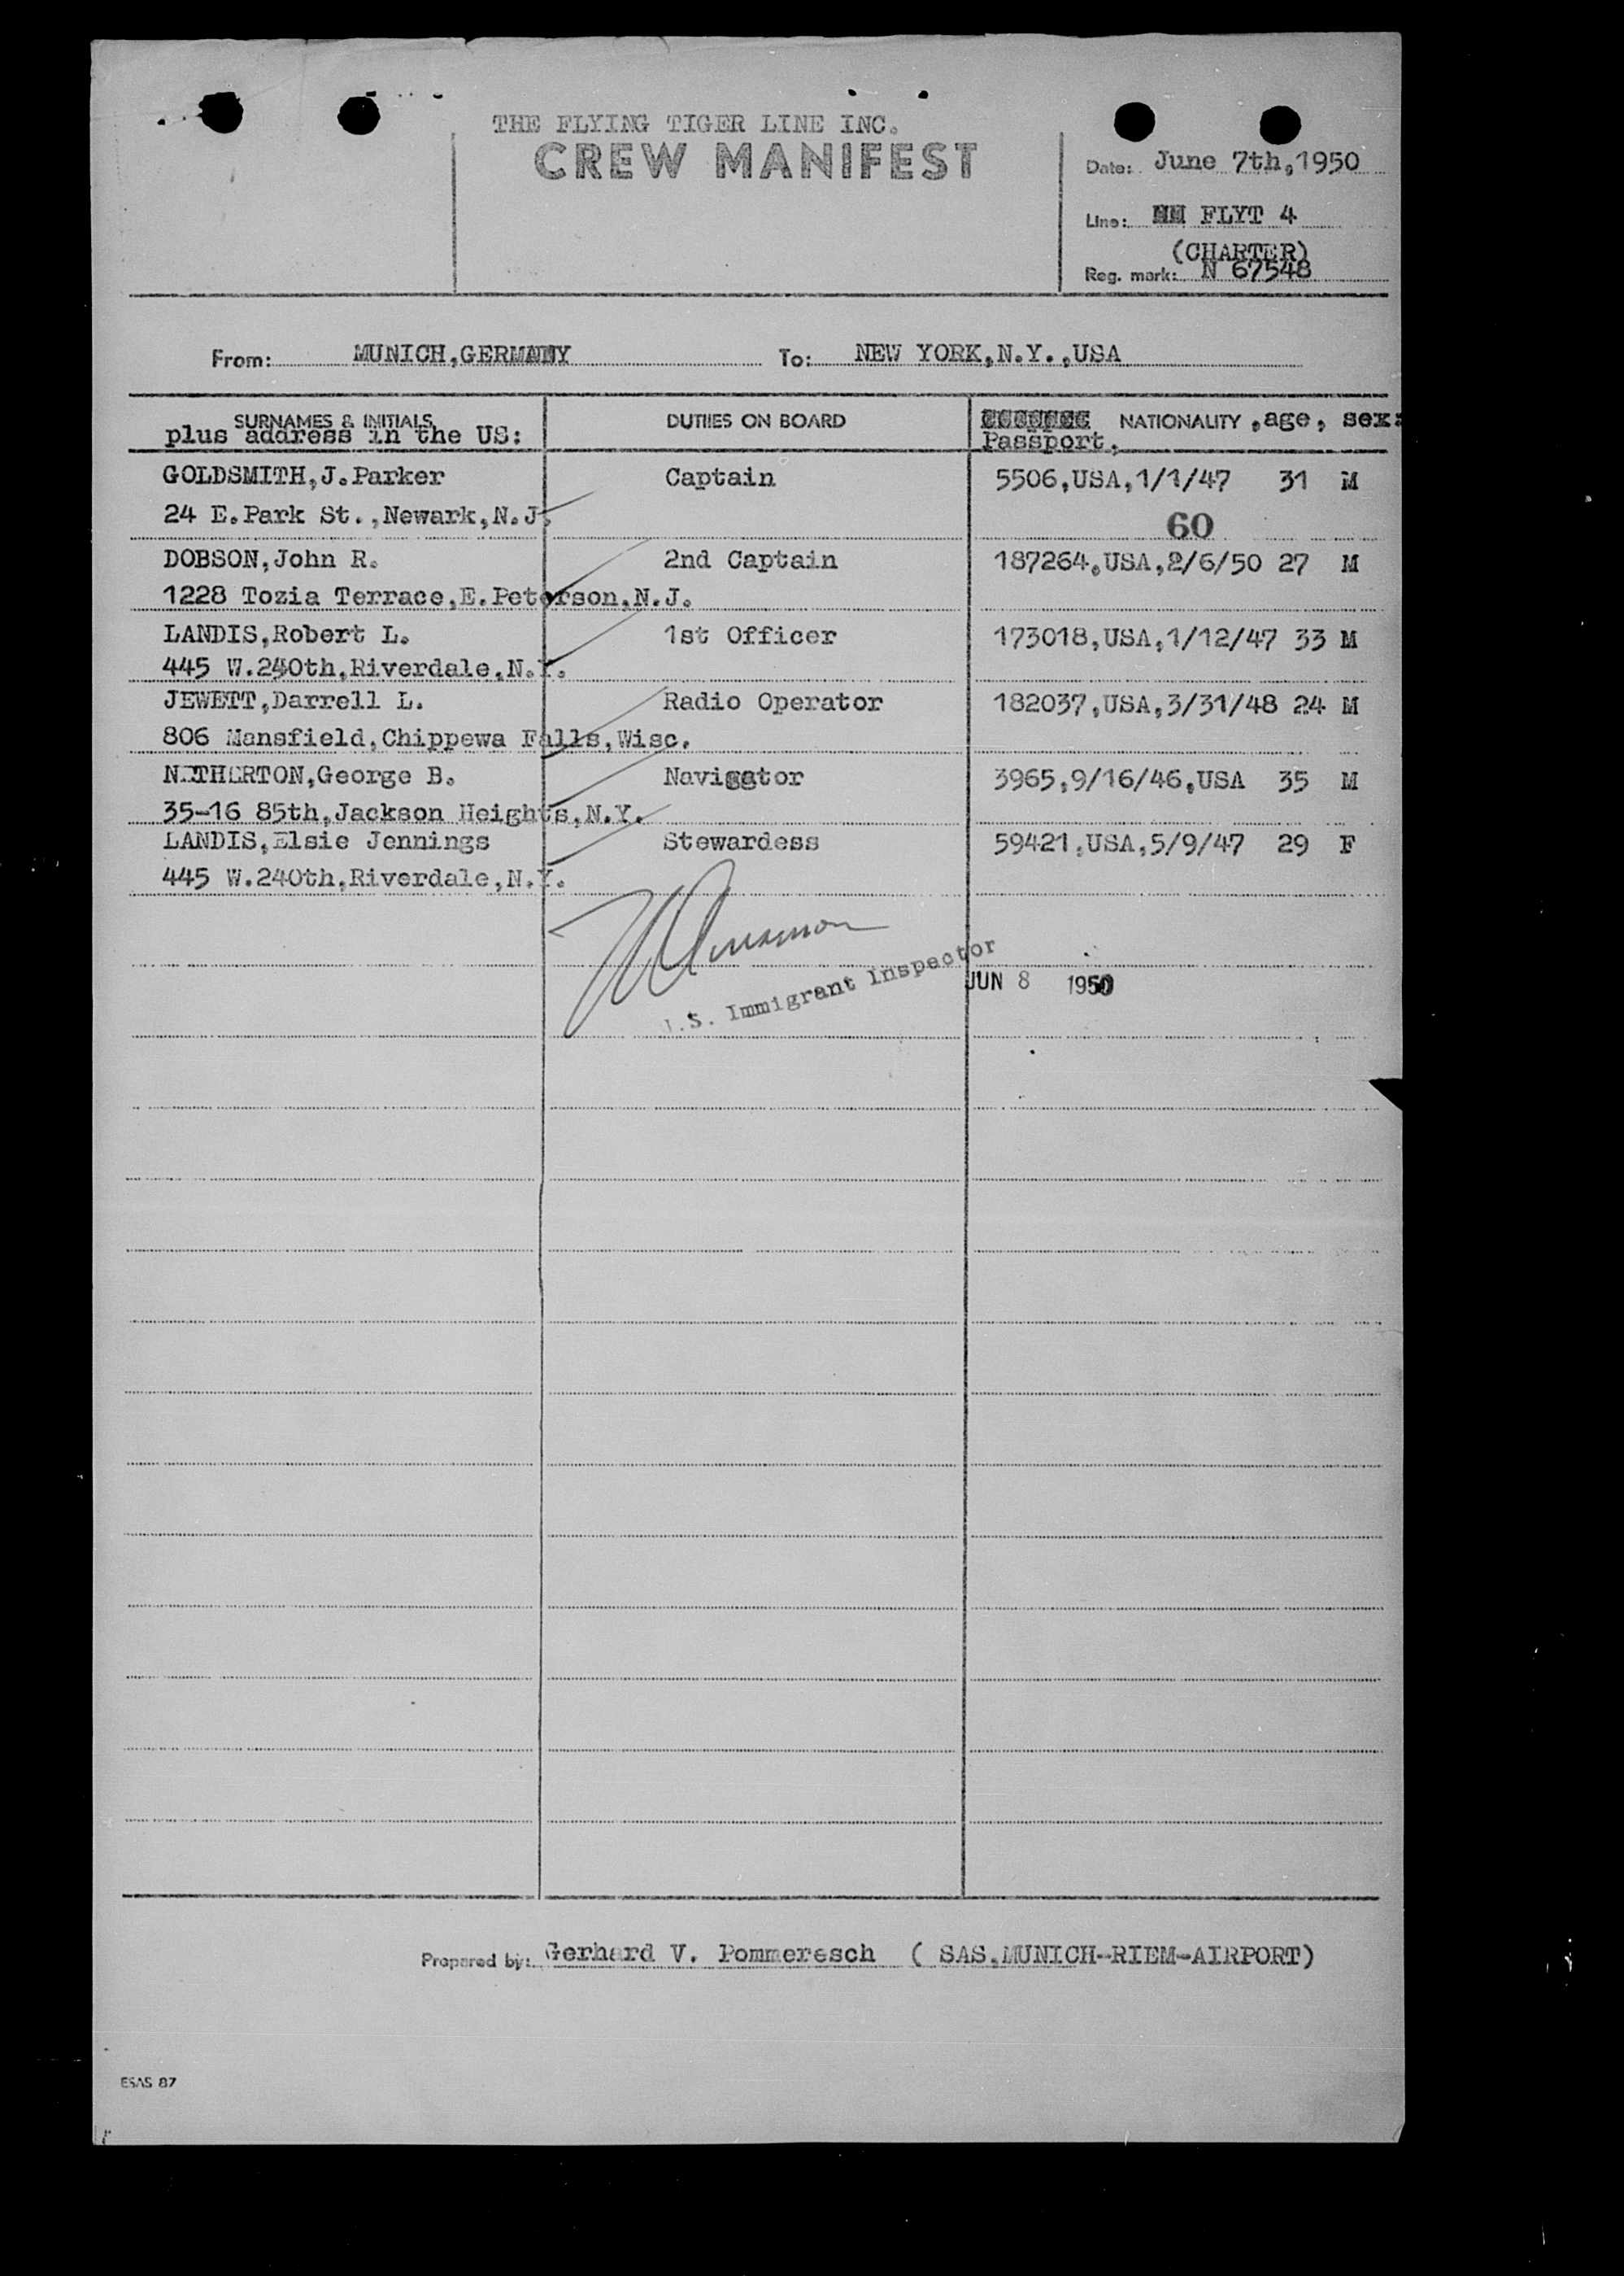 THE FLYING TIGER LINE INC.
CREW MANIFEST
Date: June 7th,1950
Line: FLYT 4
(CHARTER)
Reg. mark: N 67548
From: MUNICH,GERMANY To: NEW YORK,N.Y.,USA
SURNAMES & INITIALS DUTIES ON BOARD NATIONALITY ,age, sex:
plus address in the US: Passport,
GOLDSMITH,J.Parker Captain 5506,USA,1/1/47 31 M
24 E.Park St.,Newark,N.J.
60
DOBSON,John R. 2nd Captain 187264,USA,2/6/50 27 M
1228 Tozia Terrace,E.Peterson,N.J.
LANDIS,Robert L. 1st Officer 173018,USA,1/12/47 33 M
445 W.240th,Riverdale,N.Y.
JEWETT,Darrell L. Radio Operator 182037,USA,3/31/48 24 M
806 Mansfield,Chippewa Falls,Wisc.
NETHERTON,George B. Navigator 3965,9/16/46,USA 35 M
35-16 85th,Jackson Heights,N.Y.
LANDIS,Elsie Jennings Stewardess 59421,USA,5/9/47 29 F
445 W.240th,Riverdale,N.Y.
U.S. Immigrant Inspector
JUN 8 1950
Prepared by: Gerhard V. Pommeresch ( SAS,MUNICH-RIEM-AIRPORT)
ESAS 87